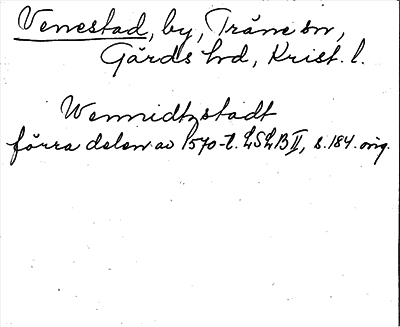 Venestad, by, Träne sn,
Gärds hd, Krist. l.
Wennidtzstadt
förra delen av 1570-t. LSLB II, s. 184. orig.